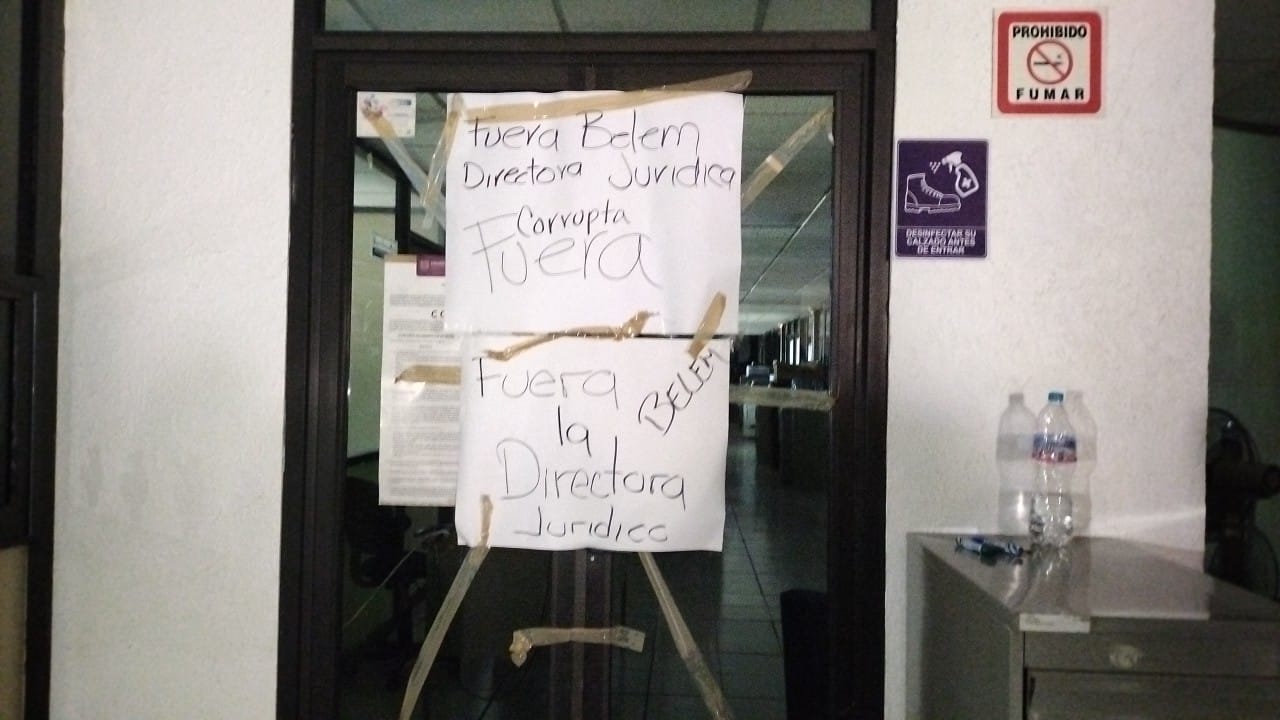 Fuera Belem
Directora Juridica
Corrupta
Fuera
Fuera
la
BELEM
Directora
Juridicc
PROHIBIDO
FUMAR
DESINFECTAR SU
CALZADO ANTES
DE ENTRAR